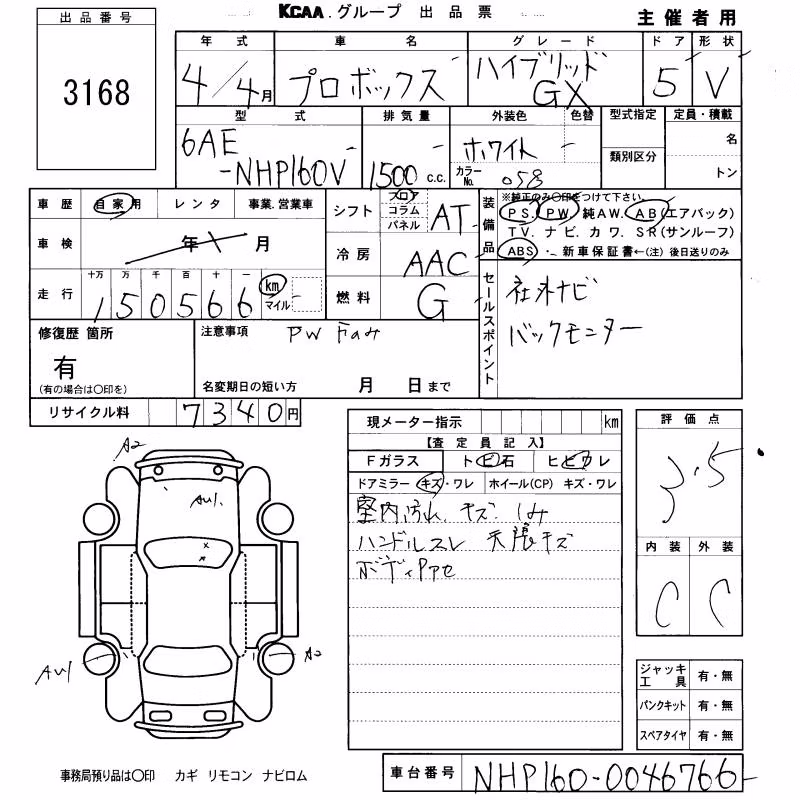 出品番号
3168
KCAA.グループ 出品票
主催者用
年式 車名 グレード ドア 形状
4/4月 プロボックス ハイブリッド GX 5 V
型式 排気量 外装色 色替 型式指定 定員・積載
6AE -NHP160V 1500 c.c. ホワイト カラーNo. 058 類別区分 名 トン
車歴 自家用 レンタ 事業.営業車
シフト フロア コラム パネル AT
装備品 ※純正のみ〇印をつけて下さい。
PS. PW. 純AW. AB(エアバック)
TV. ナビ. カワ. SR(サンルーフ)
ABS ・ 新車保証書←(注) 後日送りのみ
車検 年 月
冷房 AAC
走行 十万 万 千 百 十 一 km マイル
150566
燃料 G
セールスポイント
社外ナビ
バックモニター
修復歴 箇所
有
(有の場合は〇印を)
注意事項 PW
名変期日の短い方 月 日まで
リサイクル料 7340円
現メーター指示 km
【査定員記入】
Fガラス ト ビ 石 ヒ ビ カ レ
ドアミラー キズ・ワレ ホイール(CP) キズ・ワレ
室内汚れ、キズ、しみ
ハンドルスレ 天張キズ
ボディ
評価点
3.5
内装 外装
C C
A2
AU1.
AU1
A2
ジャッキ工具 有・無
パンクキット 有・無
スペアタイヤ 有・無
事務局預り品は〇印 カギ リモコン ナビロム
車台番号 NHP160-0046766